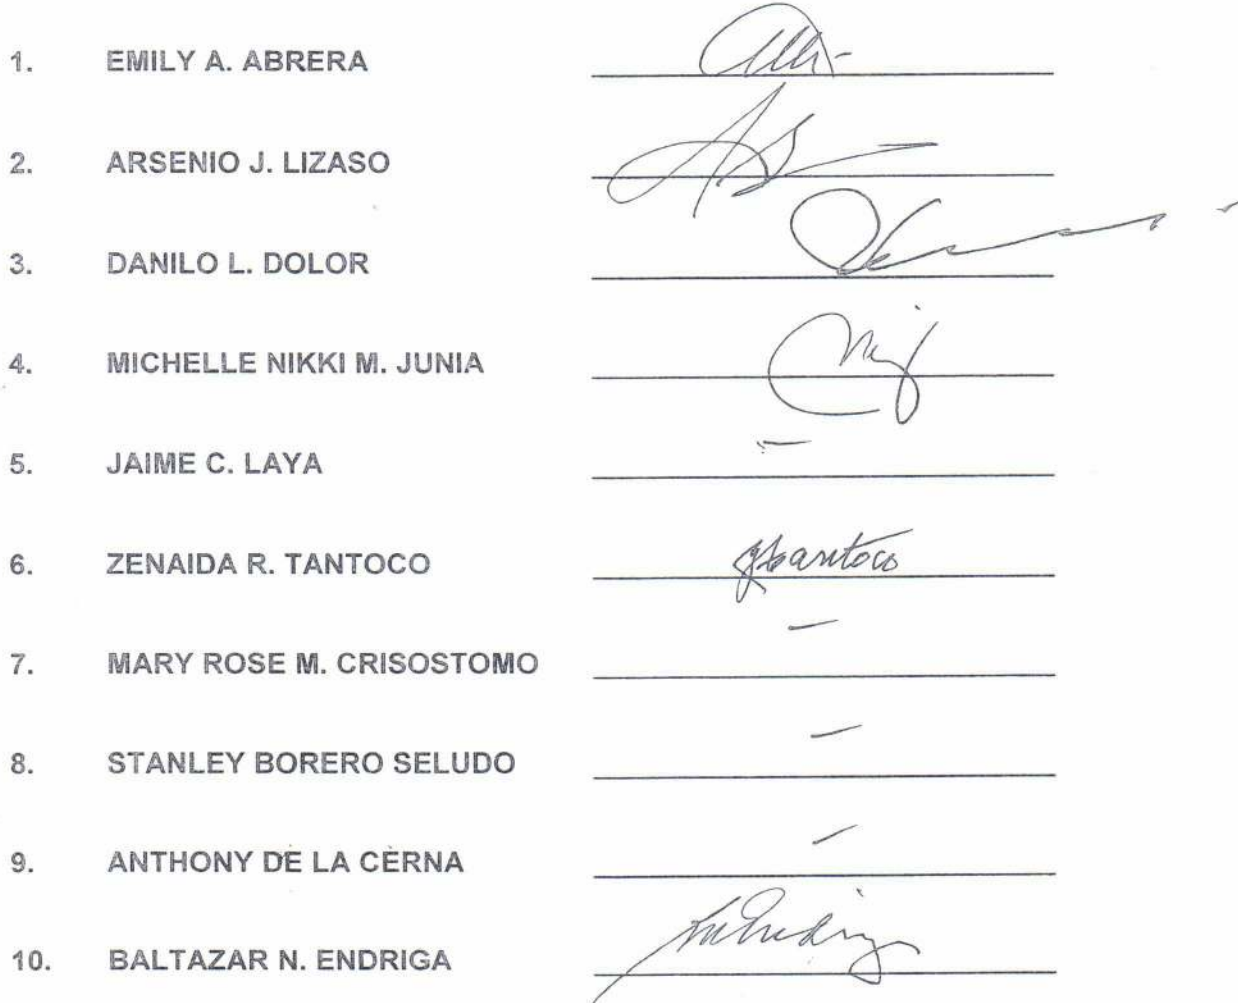 1. EMILY A. ABRERA
2. ARSENIO J. LIZASO
3. DANILO L. DOLOR
4. MICHELLE NIKKI M. JUNIA
5. JAIME C. LAYA –
6. ZENAIDA R. TANTOCO
7. MARY ROSE M. CRISOSTOMO –
8. STANLEY BORERO SELUDO –
9. ANTHONY DE LA CERNA –
10. BALTAZAR N. ENDRIGA